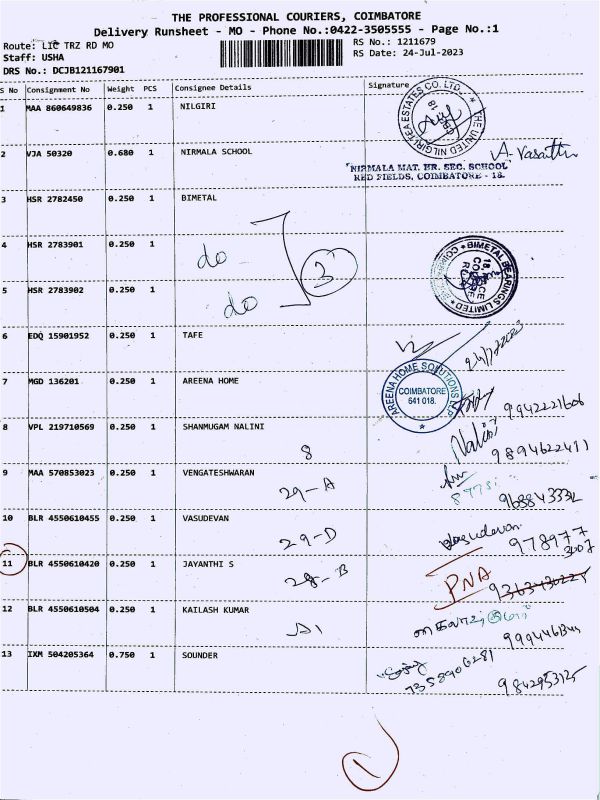 THE PROFESSIONAL COURIERS, COIMBATORE
Delivery Runsheet - MO - Phone No.:0422-3505555 - Page No.:1
Route: LIC TRZ RD MO
RS No.: 1211679
Staff: USHA
RS Date: 24-Jul-2023
DRS No.: DCJB121167901
S No Consignment No Weight PCS Consignee Details Signature
1 MAA 860649836 0.250 1 NILGIRI
THE UNITED NILGIRI TEA ESTATES CO. LTD.
2 VJA 50320 0.680 1 NIRMALA SCHOOL
A. Vasanthi
NIRMALA MAT. HR. SEC. SCHOOL
RED FIELDS, COIMBATORE - 18.
3 HSR 2782450 0.250 1 BIMETAL
4 HSR 2783901 0.250 1 do
3
BIMETAL BEARINGS LIMITED
5 HSR 2783902 0.250 1 do
6 EDQ 15901952 0.250 1 TAFE
24/7/2023
7 MGD 136201 0.250 1 AREENA HOME
AREENA HOME SOLUTIONS LLP
COIMBATORE
641 018.
9942221606
8 VPL 219710569 0.250 1 SHANMUGAM NALINI
8
Nalini
9894622411
9 MAA 570853023 0.250 1 VENGATESHWARAN
29-A
9 BLR 4550610455 0.250 1 VASUDEVAN
29-D
Vasudevan
978977
3007
11 BLR 4550610420 0.250 1 JAYANTHI S
28-B
PNA
12 BLR 4550610504 0.250 1 KAILASH KUMAR
13 IXM 504205364 0.750 1 SOUNDER
7358906281
9842953125
1